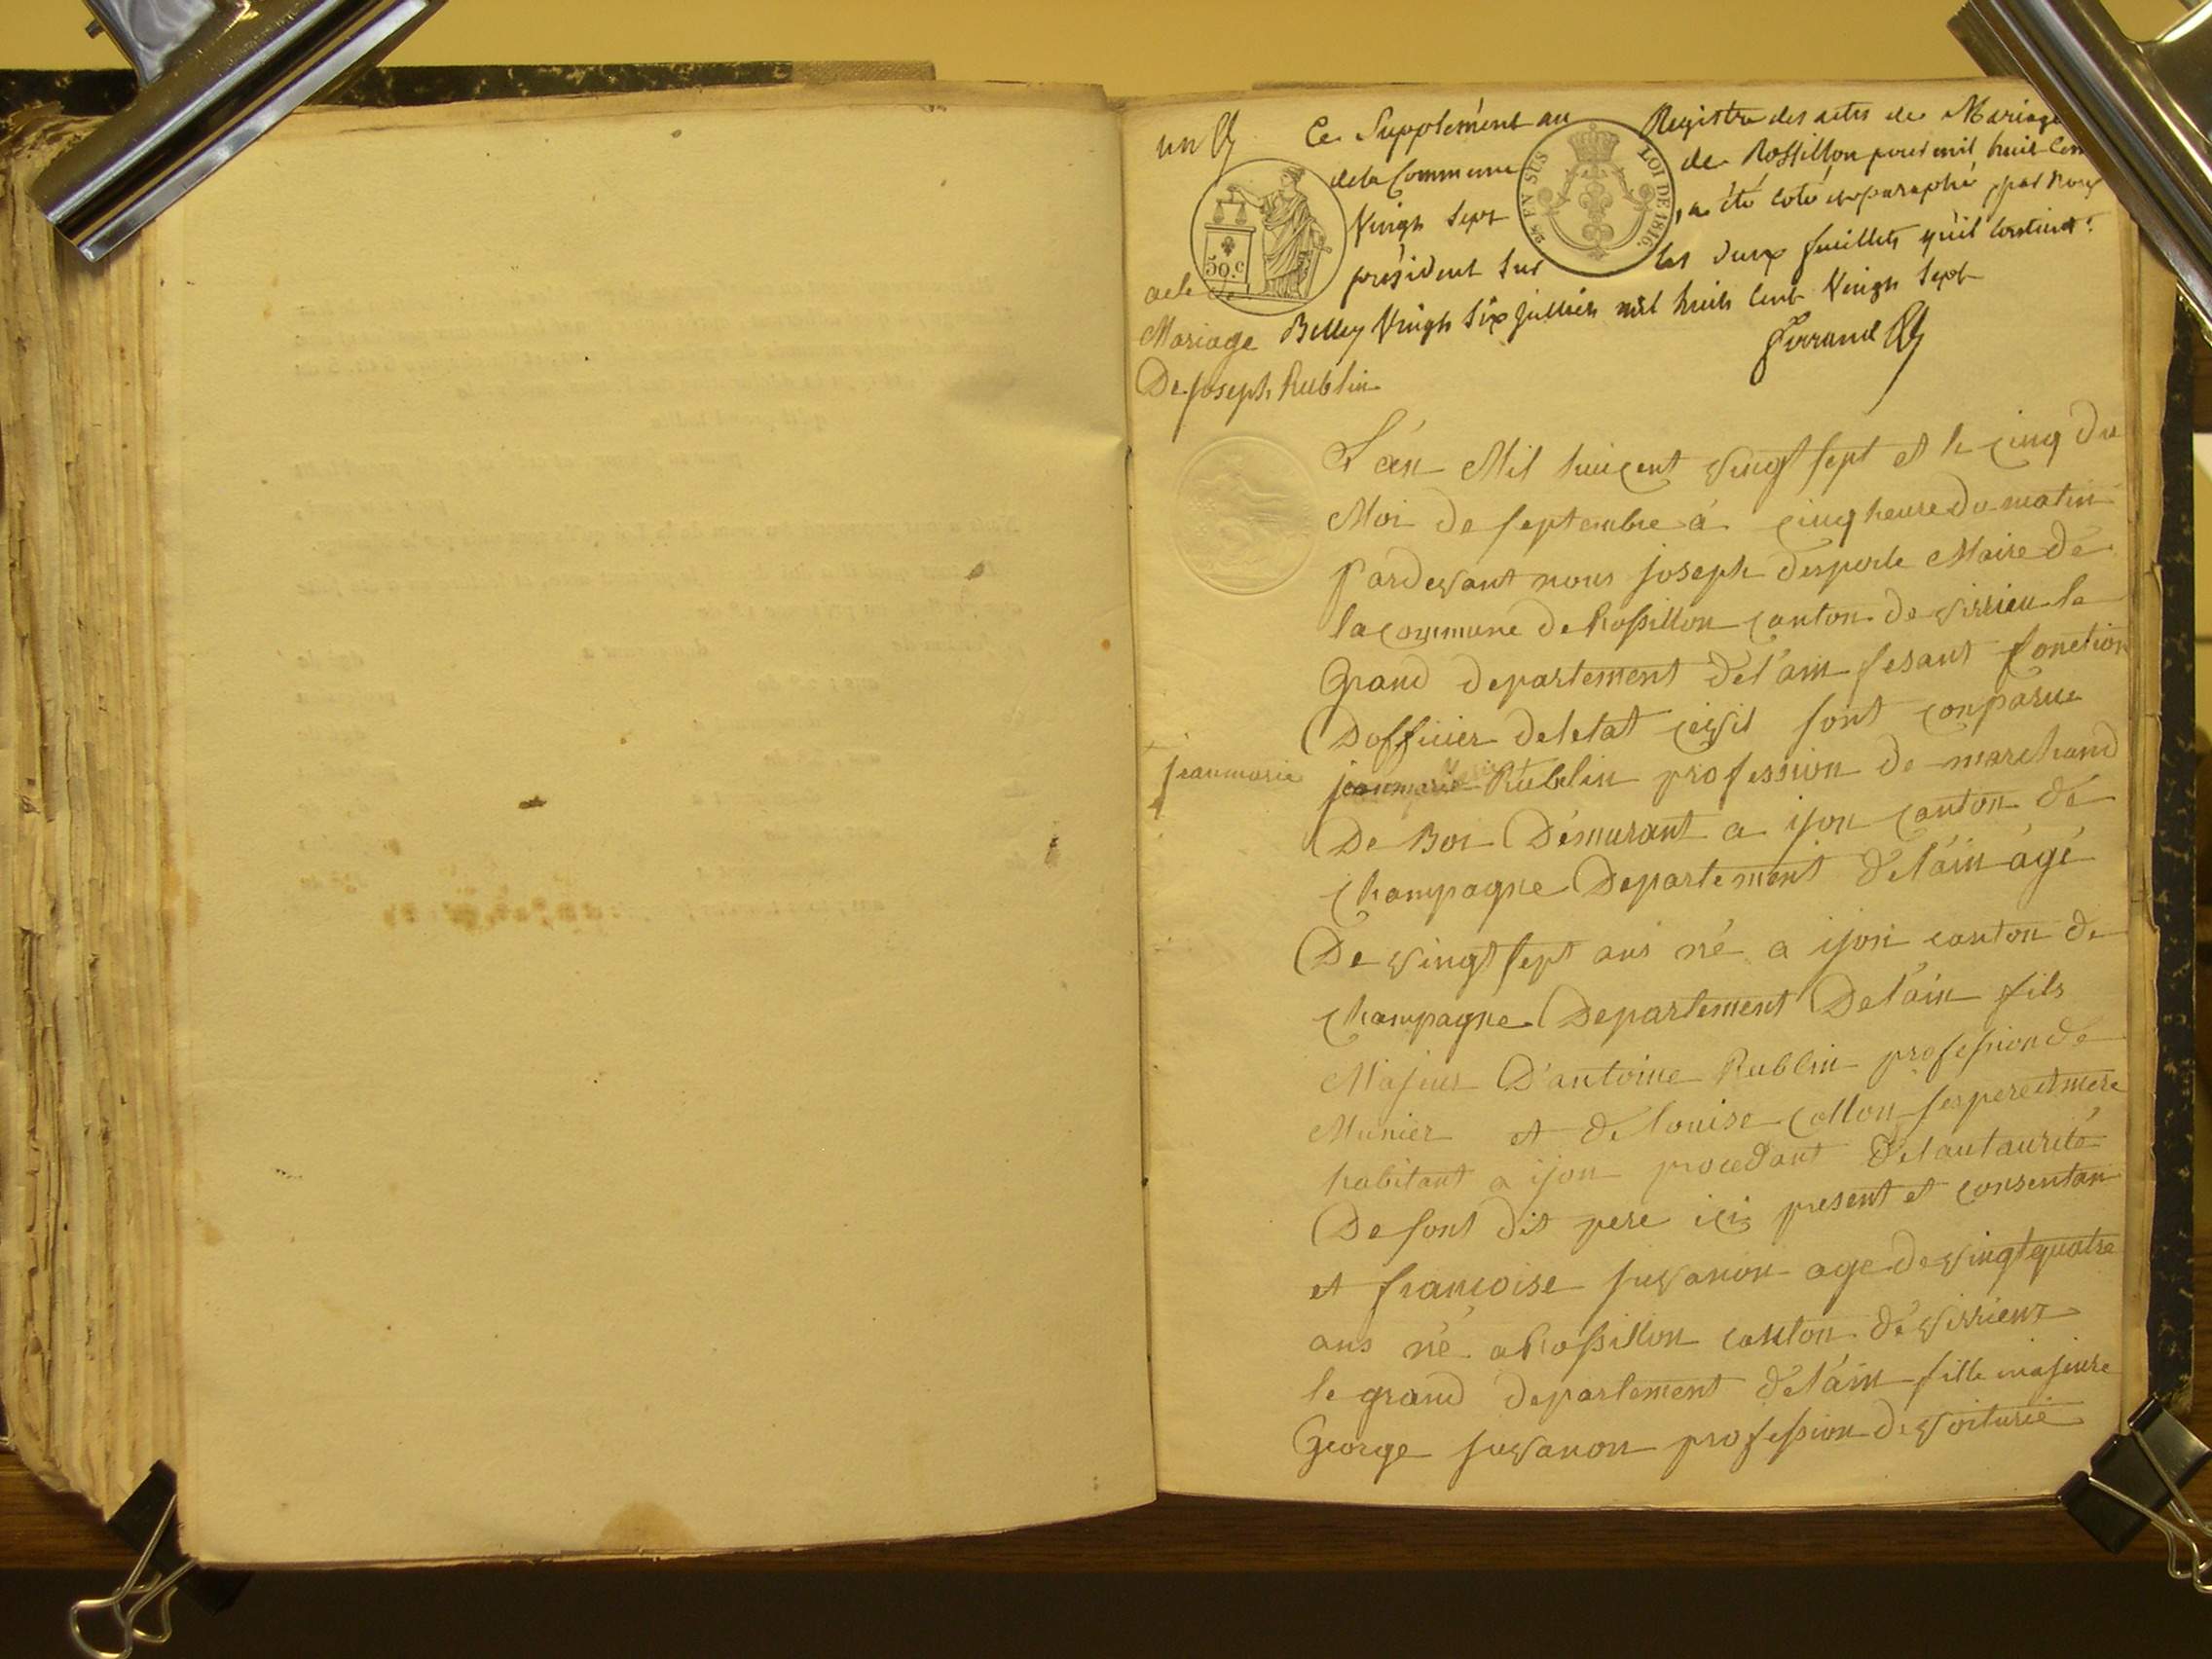 un
Ce Supplément au Registre des actes de Mariage
de la Commune de Rossillon pour mil huit Cent
Vingt Sept, a été coté et paraphé par nous
président sur les deux feuillets qu'il contient.
Belley Vingt Six juillet mil huit Cent Vingt Sept
Ferrand
2.M EV SUS LOI DE 1816.
50.C
acte de
Mariage
De joseph Rublin
L'an Mil huit cent vingt sept et le cinq du
Moi de septembre à cinq heure du matin
Pardevant nous joseph desporte Maire de
la commune de Rossillon canton de virrieu le
Grand departement de l'ain fesant fonction
Dofficier deletat civil sont conparue
jeanmarie
jeanmarie Rublin profession de marchand
De Boi Démurant a ijon canton de
champagne Departement de l'ain âgé
De vingt sept ans né a ijon canton de
champagne Departement De l'ain fils
Majeur D'antoine Rublin profession de
Munier et de louise collon ses pere et mere
habitant a ijon procedant de l'autaurité
De sont dit pere ici present et consentan
et francoise juvanon age de vingt quatre
ans né a Rossillon canton de virrieux
le grand departement de l'ain fille majeure
George juvanon profession de voiturié